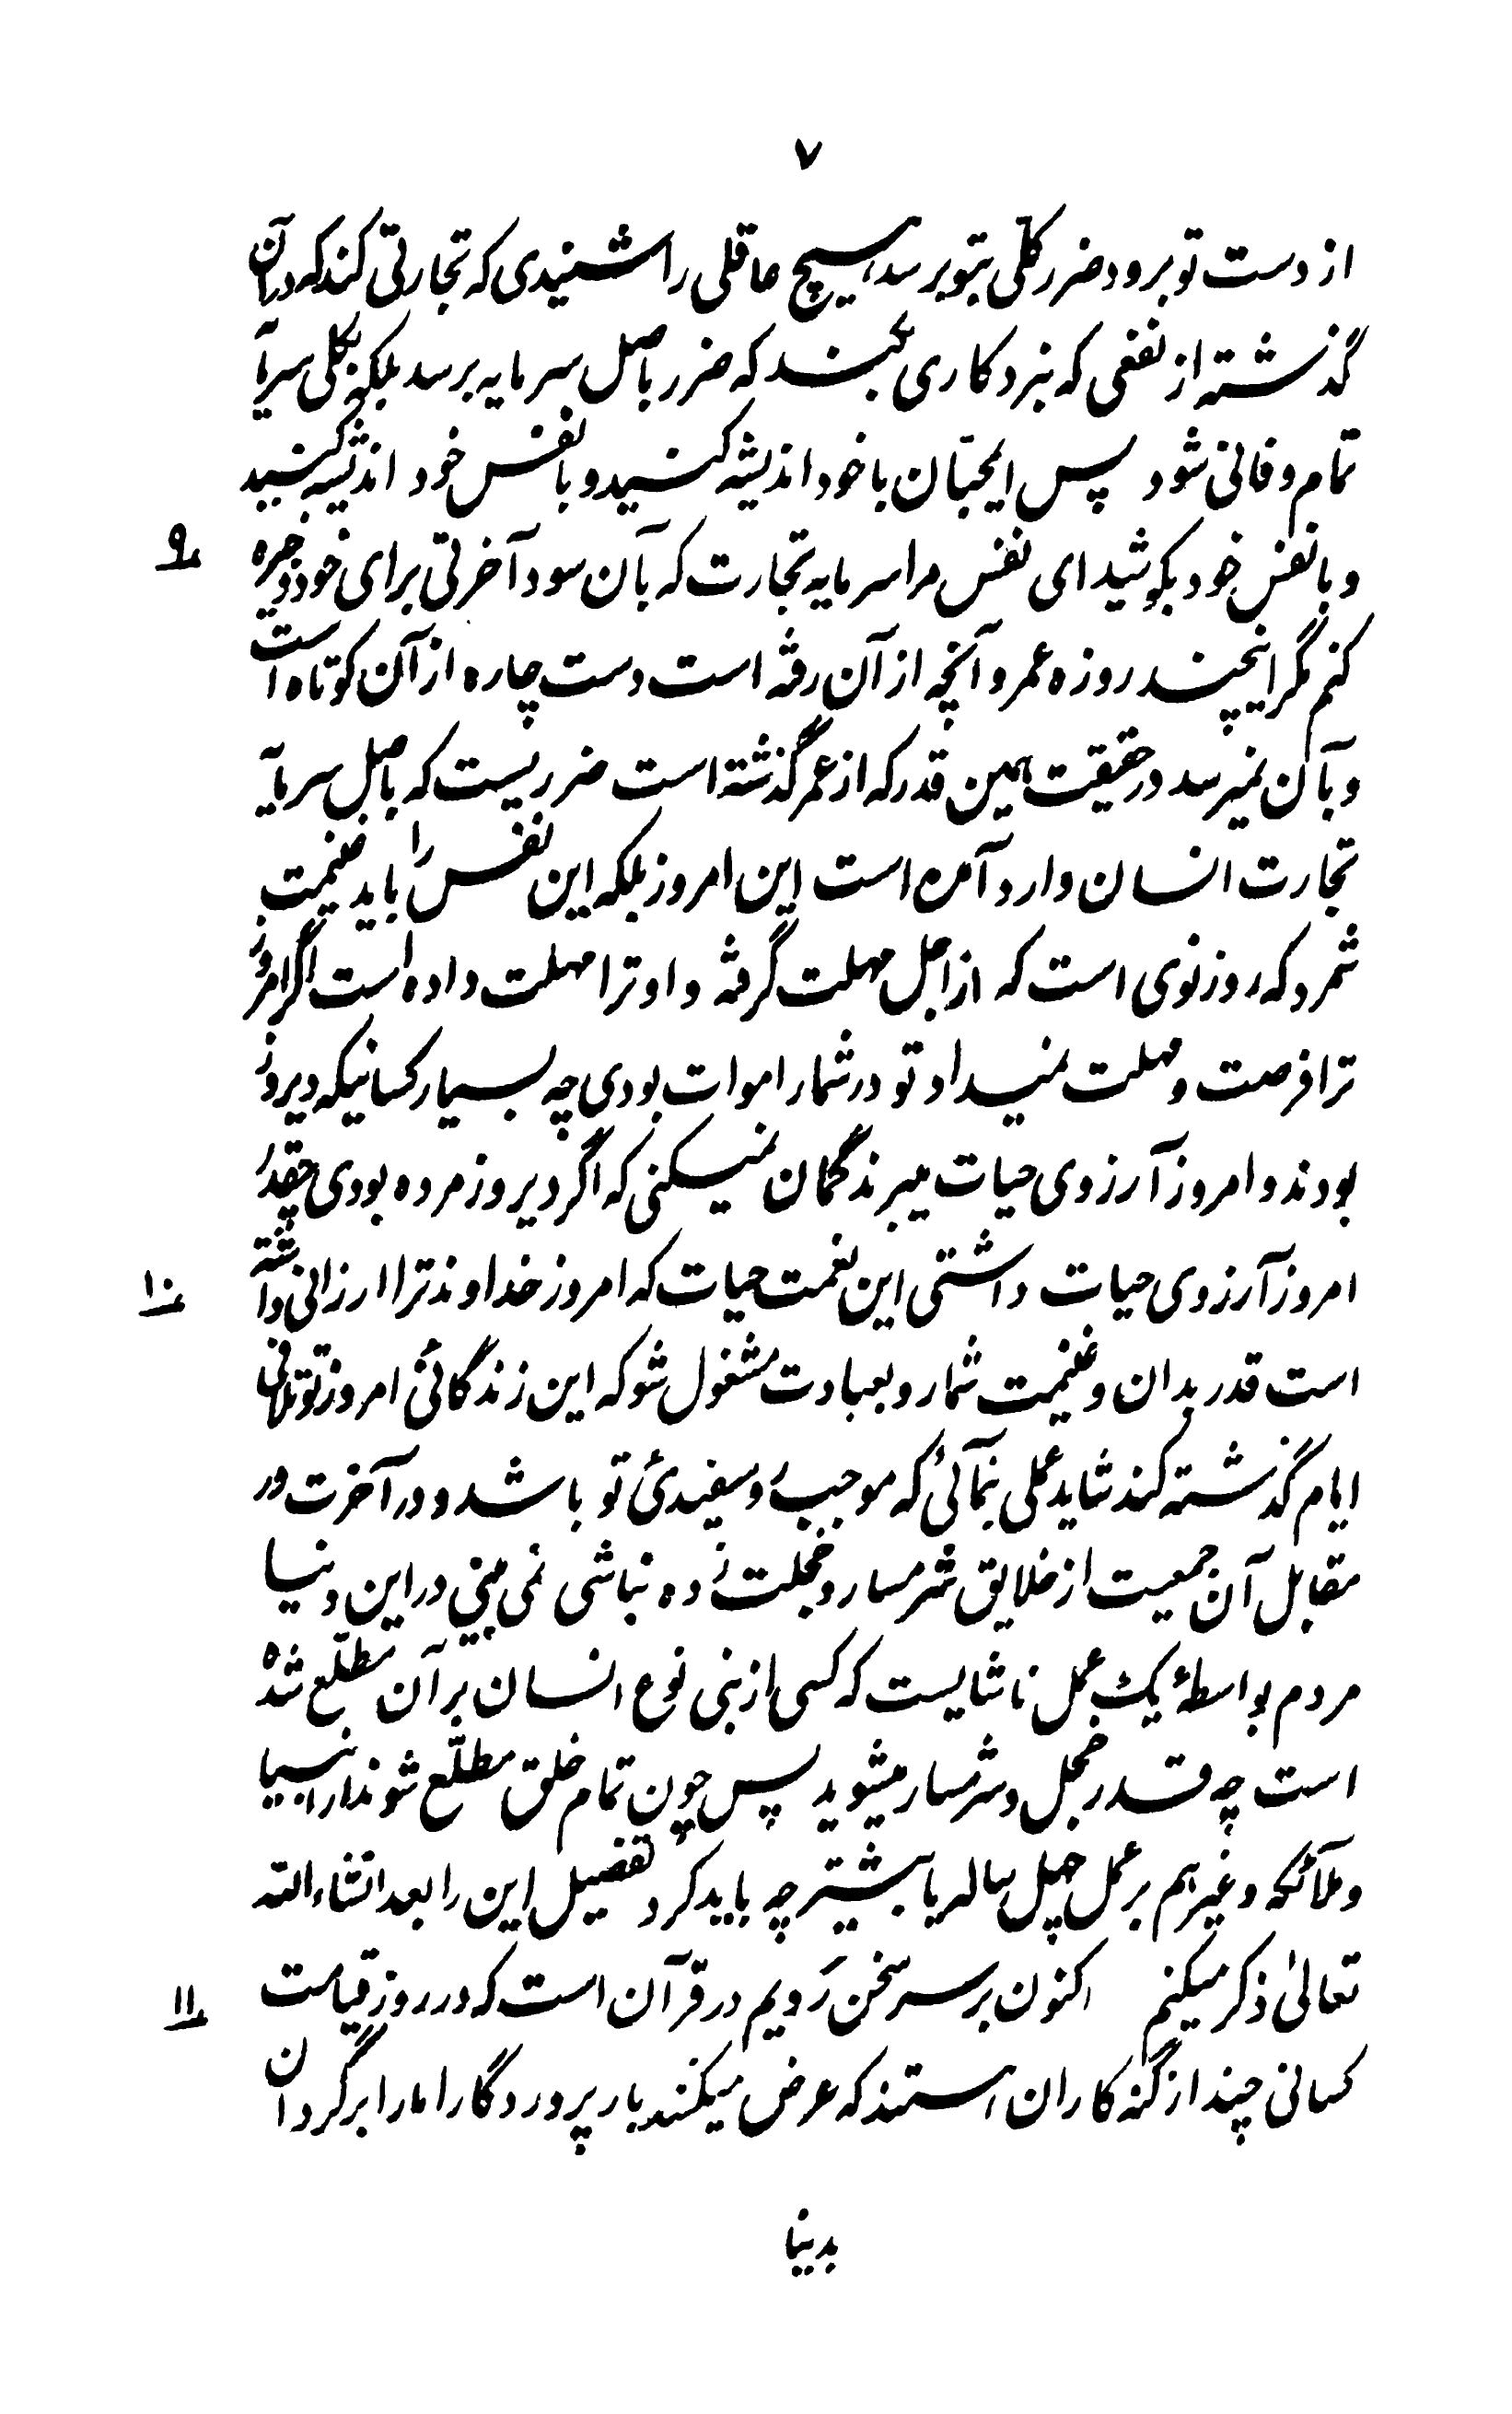 ۷
از دست تو برود ضرر کلّی بتو برسد هیچ عاقلی را شنیدی که تجارتی کند که در آن
گذشته از نفعی که نبرد کاری بکند که ضرر باصل سرمایه برسد بلکه بکلی سرمایه
تمام و فانی شود پس ایمحبّان با خود اندیشه کنید و با نفس خود اندیشه کنید
و با نفس خود بکوشید ای نفس مرا سرمایه تجارت که بآن سود آخرتی برای خود ذخیره
۹
کنم مگر اینچند روزه عمر و آنچه از آن رفته است دست چاره از آن کوتاه است
و بآن نمیرسد در حقیقت همین قدر که از عمر گذشته است ضرریست که باصل سرمایه
تجارت انسان وارد آمده است این امروز بلکه این نفس را باید غنیمت
شمرد که روز نوی است که از اجل مهلت گرفته و او ترا مهلت داده است اگر امروز
ترا فرصت و مهلت نمیداد تو در شمار اموات بودی چه بسیار کسانیکه دیروز
بودند و امروز آرزوی حیات میبرند گمان نمیکنی که اگر دیروز مرده بودی چقدر
امروز آرزوی حیات داشتی این نعمت حیات که امروز خداوند ترا ارزانی داشته
۱۰
است قدر بدان و غنیمت شمار و بعبادت مشغول شو که این زندگانی امروز تو تلافی
ایام گذشته کند شاید عملی بنمائی که موجب رو سفیدی تو باشد و در آخرت در
مقابل آن جمعیت از خلایق شرمسار و خجلت زده نباشی نمی بینی در این دنیا
مردم بواسطهٔ یک عمل ناشایست که کسی از بنی نوع انسان بر آن مطلّع شده
است چه قدر خجل و شرمسار میشوید پس چون تمام خلق مطلّع شوند از انبیا
و ملآئکه و غیرهم بر عمل چهل ساله یا بیشتر چه باید کرد تفصیل این را بعد انشاء الله
تعالیٰ ذکر میکنم اکنون بر سر سخن رَویم در قرآن است که در روز قیامت
۱۱
کسانی چند از گنه کاران هستند که عرض میکنند بار پروردگارا ما را برگردان
بدنیا